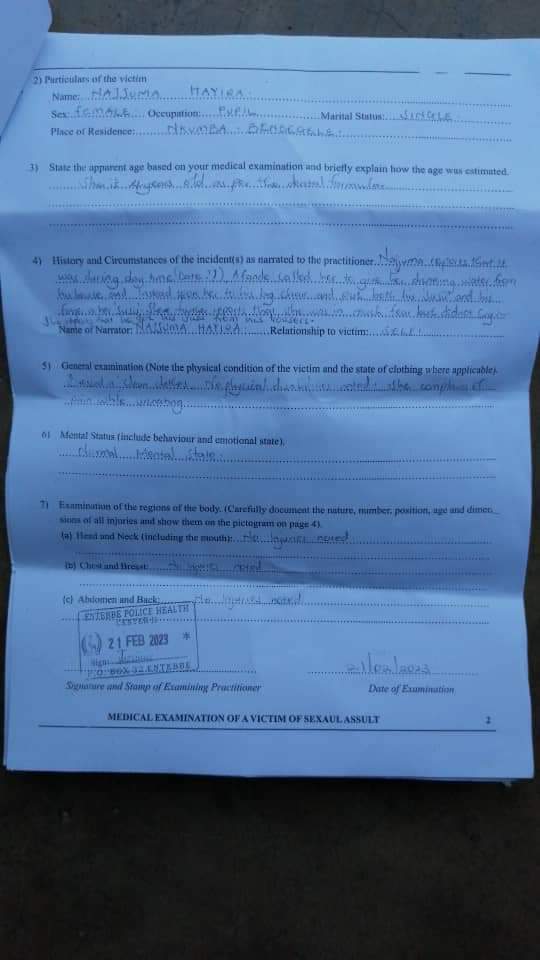 2) Particulars of the victim
Name: NAJJUMA HAYIRA
Sex: FEMALE Occupation: PUPIL Marital Status: SINGLE
Place of Residence: NKUMBA - BENDEGELE
3) State the apparent age based on your medical examination and briefly explain how the age was estimated.
She is years old as per the dental formular
4) History and Circumstances of the incident(s) as narrated to the practitioner. Najjuma reports that it
was during day time Afande called her to give her drinking water from
his house and instead her to his big chair and both his and his
She further reports that she was in much but didn't
She
Name of Narrator: NAJJUMA HAYIRA Relationship to victim: SELF
5) General examination (Note the physical condition of the victim and the state of clothing where applicable).
clean clothes. No physical noted. She complains of
pain while urinating
6) Mental Status (include behaviour and emotional state).
Normal Mental State
7) Examination of the regions of the body. (Carefully document the nature, number, position, age and dimen
sions of all injuries and show them on the pictogram on page 4).
(a) Head and Neck (including the mouth): No Injuries noted
(b) Chest and Breast: No injuries noted
(c) Abdomen and Back: No Injuries noted
ENTEBBE POLICE HEALTH
CENTER
21 FEB 2023 *
Sign:
P.O. BOX 32 ENTEBBE
21/02/2023
Signature and Stamp of Examining Practitioner Date of Examination
MEDICAL EXAMINATION OF A VICTIM OF SEXAUL ASSULT 2